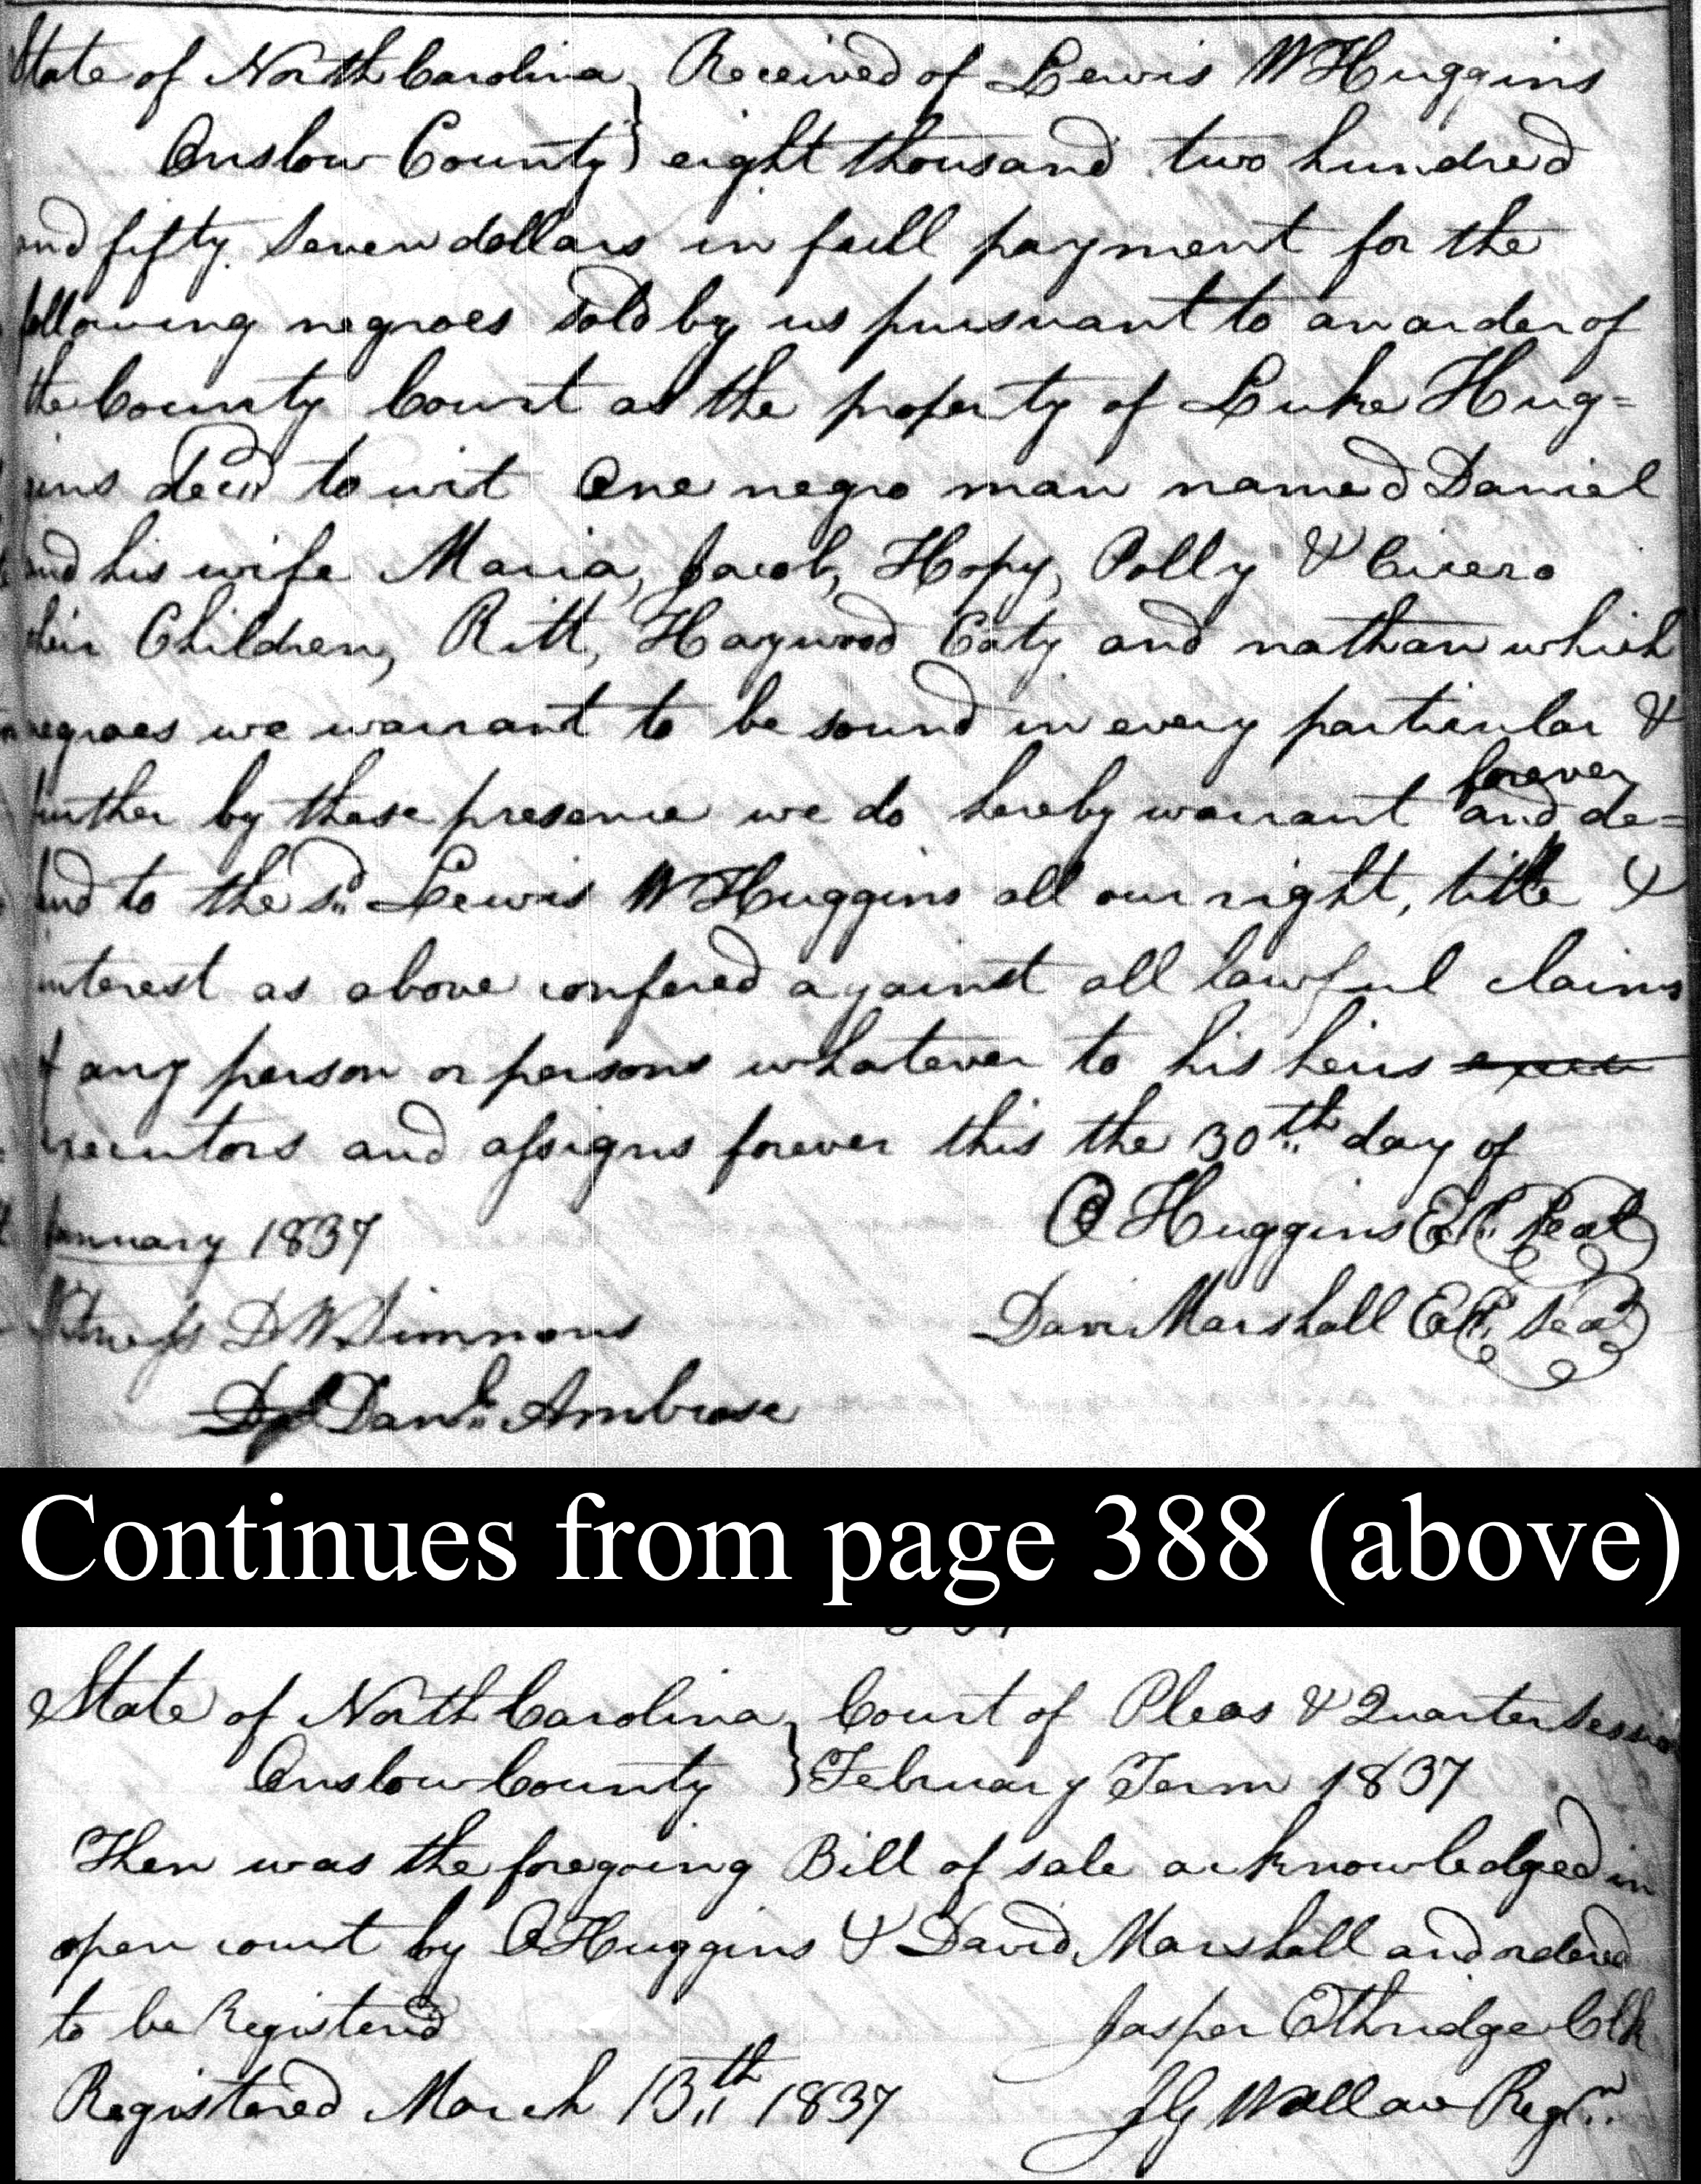 State of North Carolina } Received of Lewis W Huggins
Onslow County } eight thousand two hundred
and fifty seven dollars in full payment for the
following negroes sold by us pursuant to an order of
the County Court as the property of Luke Hug=
gins decd to wit One negro man named Daniel
and his wife Maria, Jacob, Hopy, Polly & Cicero
their Children, Ritt, Haywood Caty and nathan which
negroes we warrant to be sound in every particular &
further by these presence we do hereby warrant and forever de=
fend to the sd Lewis W Huggins all our right, title &
interest as above confered against all lawful claims
of any person or persons whatever to his heirs
executors and assigns forever this the 30th day of
January 1837
O Huggins Ex. Seal
Witness D W Simmons
Davi Marshall Ex. Seal
Danl Ambrose
Continues from page 388 (above)
State of North Carolina } Court of Pleas & Quarter Session
Onslow County } February Term 1837
Then was the foregoing Bill of sale acknowledged in
open court by O Huggins & David Marshall and ordered
to be Registered
Jasper Ethridge Clk
Registered March 13th 1837
J G Wallace Regr